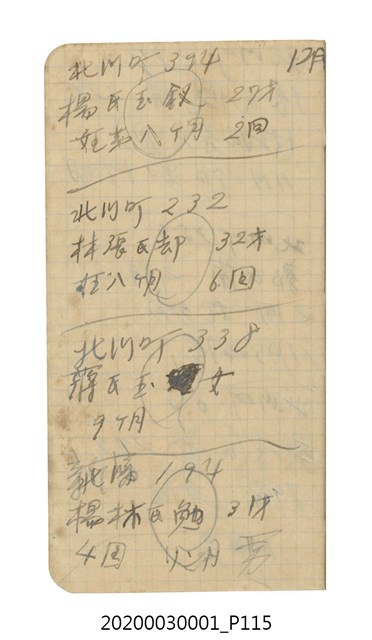 12月
北川町 394
楊氏玉釵 27才
妊娠八ヶ月 2回
北川町 232
林張氏却 32才
妊八ヶ月 6回
北川町 338
薛氏玉 女
9ヶ月
194
楊林氏勉 31才
4回 月
20200030001_P115